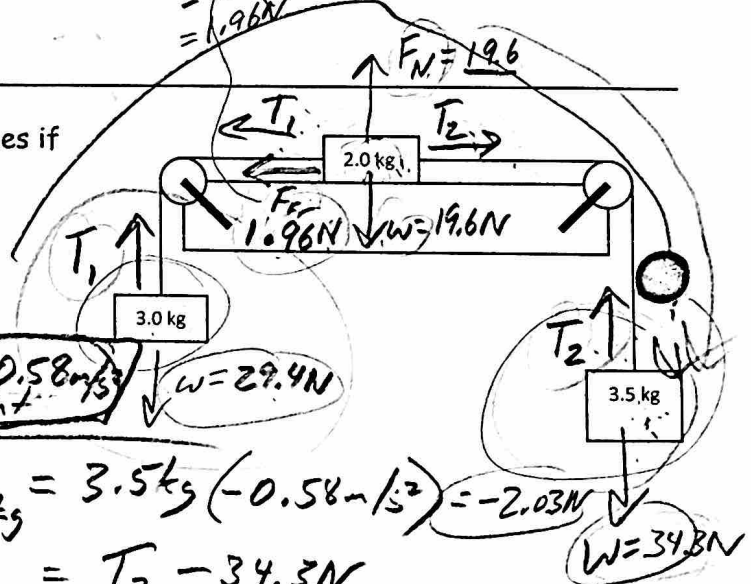 = 1.96N
F_N = 19.6
es if
T₁
T₂
2.0 kg
F_fr
1.96N
w=19.6N
T₁
3.0 kg
T₂
3.5 kg
0.58m/s²
w=29.4N
kg = 3.5kg (-0.58m/s²) = -2.03N
W=34.3N
= T₂ - 34.3N